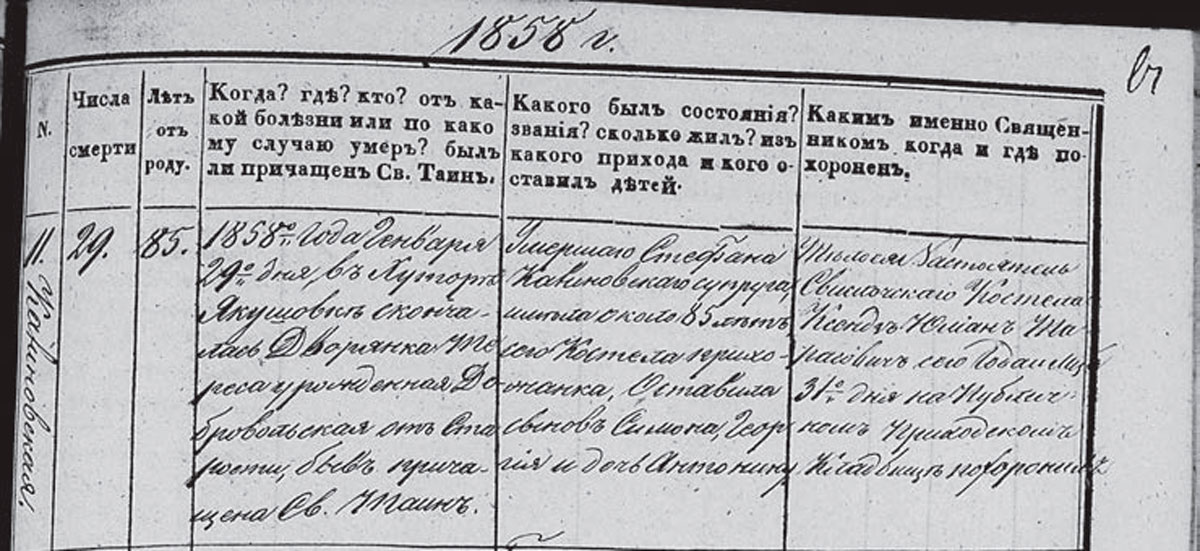 1858 г.
N.
Числа
смерти
Лѣтъ
отъ
роду.
Когда? гдѣ? кто? отъ ка-
кой болѣзни или по како
му случаю умеръ? былъ
ли причащенъ Св. Таинъ.
Какого былъ состоянія?
званія? сколько жилъ? изъ
какого прихода и кого о-
ставилъ дѣтей.
Какимъ именно Священ-
никомъ когда и гдѣ по-
хороненъ.
11.
Калиновская.
29.
85.
1858го Года Генваря
29го дня, въ Хуторѣ
Якушовкѣ сконча-
лась Дворянка Те-
реса урожденная До
бровольская отъ Ста
рости, бывъ прича-
щена Св. Таинъ.
Умершаго Стефана
Калиновскаго супруга,
имѣла около 85 лѣтъ
сего Костела прихо-
жанка, Оставила
сыновъ Симона, Геор
гія и дочь Антонину
Тѣло Настоятель
Свислочскаго Костела
Ксендзъ Юліанъ
сего Года
31го дня на
Приходскомъ
Кладбищѣ похоронилъ